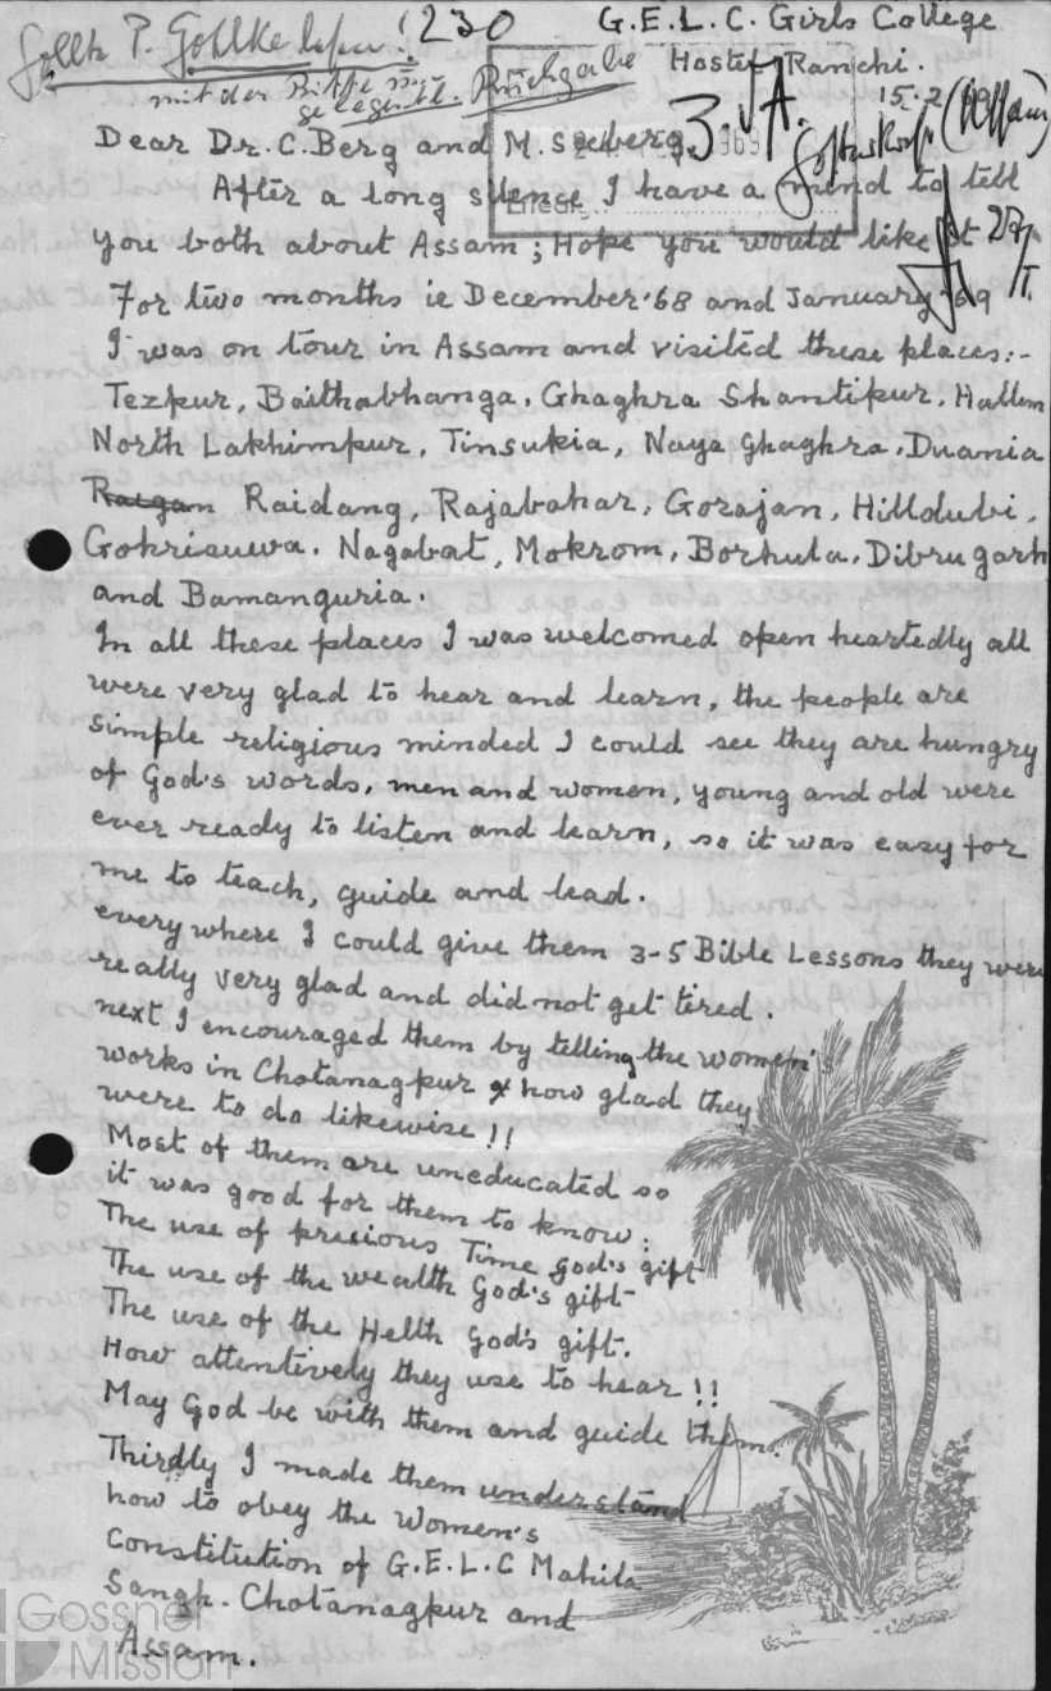 Sollte P. Gohlke lesen! 230
mit der Bitte um
gelegentl. Rückgabe
G.E.L.C. Girls College
Hostel Ranchi.
15.2.69
3. A. (Assam)
Dear Dr. C. Berg and M. Seeberg,
After a long silence I have a mind to tell
you both about Assam; Hope you would like it
For two months ie December '68 and January '69
I was on tour in Assam and visited these places:-
Tezpur, Baithabhanga, Ghaghra Shantipur, Hallem
North Lakhimpur, Tinsukia, Naya Ghaghra, Duania
Raigam Raidang, Rajabahar, Gorajan, Hilldubi,
Gohrisuwa, Nagabat, Mokrom, Borhula, Dibrugarh
and Bamanguria.
In all these places I was welcomed open heartedly all
were very glad to hear and learn, the people are
simple religious minded I could see they are hungry
of God's words, men and women, young and old were
ever ready to listen and learn, so it was easy for
me to teach, guide and lead.
every where I could give them 3-5 Bible Lessons they were
really very glad and did not get tired.
next I encouraged them by telling the women's
works in Chotanagpur & how glad they
were to do likewise!!
Most of them are uneducated so
it was good for them to know:
The use of precious Time God's gift
The use of the wealth God's gift-
The use of the Helth God's gift.
How attentively they use to hear!!
May God be with them and guide them.
Thirdly I made them understand
how to obey the Women's
Constitution of G.E.L.C Mahila
Sangh. Chotanagpur and
Assam.
Gossner
Mission